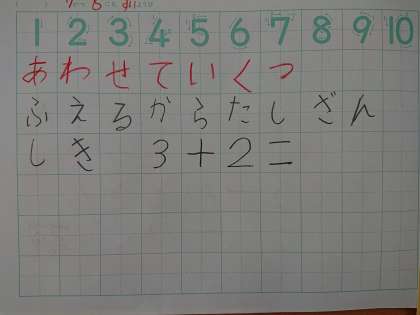 1 2 3 4 5 6 7 8 9 10
あわせていくつ
ふえるからたしざん
しき 3+2=